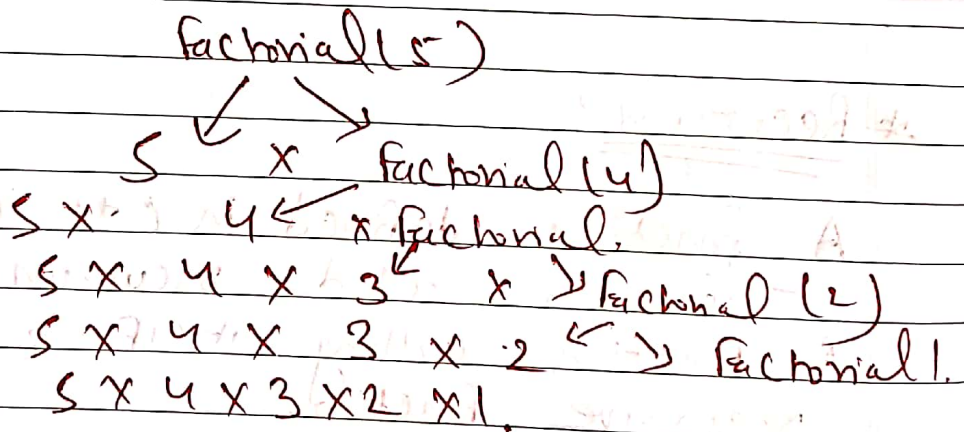 factorial(5)
5 x factorial(4)
5 x 4 x factorial.
5 x 4 x 3 x factorial (2)
5 x 4 x 3 x 2 factorial 1.
5 x 4 x 3 x 2 x 1.